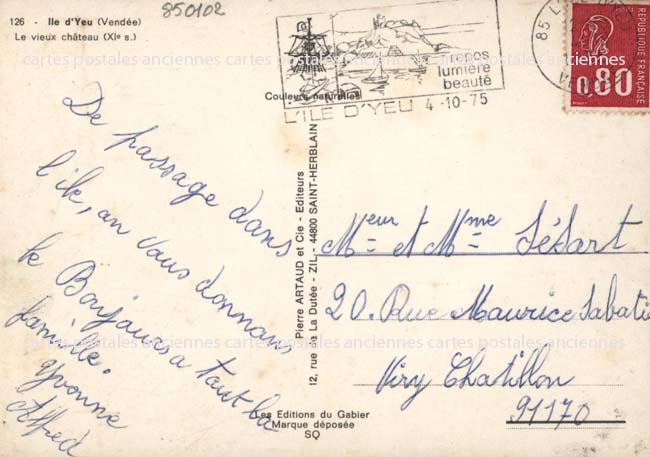 126 - Ile d'Yeu (Vendée)
Le vieux château (XIe s.)
850102
repos
lumière
beauté
L'ILE D'YEU 4-10-75
85
REPUBLIQUE FRANÇAISE
0,80
cartes postales anciennes cartes postales anciennes cartes postales anciennes
Couleurs naturelles
De passage dans
l'ile, on vous donnons
le Bonjours a tout la
famille.
Yvonne
Alfred
Pierre ARTAUD et Cie - Editeurs
12, rue de La Dutée - ZIL - 44800 SAINT-HERBLAIN
Meur et Mme Sézart
20. Rue Maurice Sabati
Viry Chatillon
91170
cartes postales anciennes cartes postales anciennes cartes postales anciennes
Les Editions du Gabier
Marque déposée
SQ